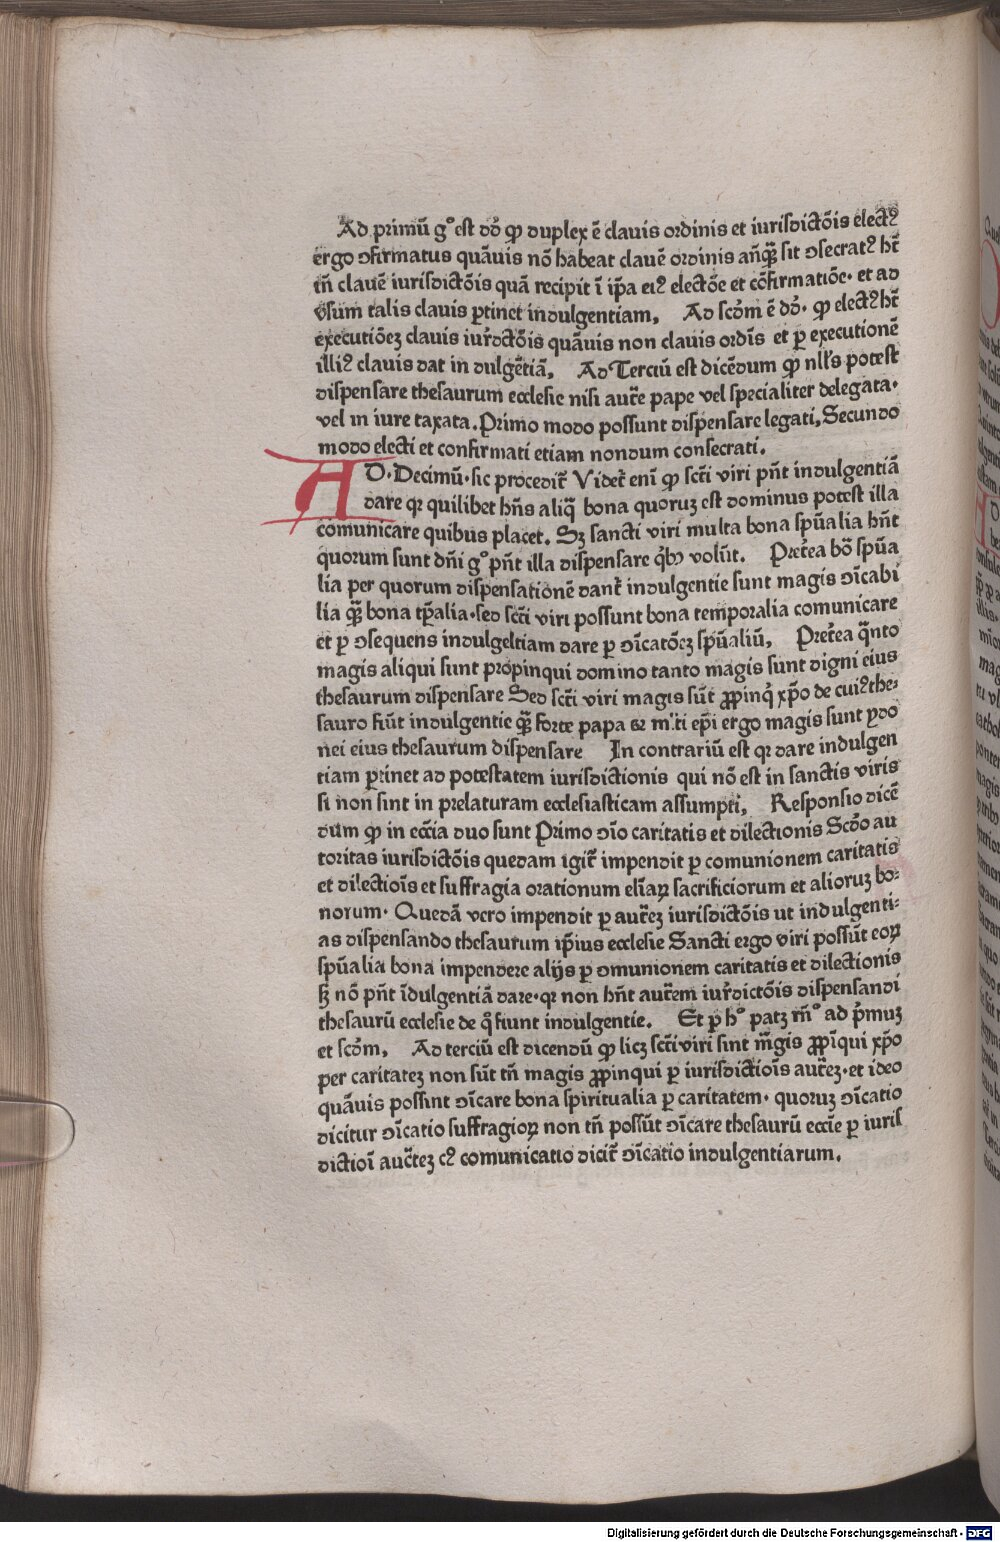 Ad primū gº est dōꝫ ꝙ duplex ē clauis ordinis et iurisdictōis elect⁹
ergo ↄfirmatus quāuis nō habeat clauē ordinis añq̃ꝫ sit ↄsecrat⁹ hꝫ
tñ clauē iurisdictōis quā recipit ī ip̄a ei⁹ electōe et cōfirmatiōe· et ad
vsum talis clauis ꝑtinet indulgentiam, Ad scd̄m ē dōꝫ· ꝙ elect⁹ hꝫ
executiōeꝫ clauis iur̄dctōis quāuis non clauis ordīs et ꝑ executionē
illi⁹ clauis dat in dulgētiā, Ad Terciū est dicēdum ꝙ nll's potest
dispensare thesaurum ecclesie nisi auc̄te pape vel specialiter delegata·
vel in iure taxata. Primo modo possunt dispensare legati, Secundo
modo electi et confirmati etiam nondum consecrati.
AD· Decimū· sic procedit̄ Videt̄ enī ꝙ sc̄ti viri pn̄t indulgentiā
dare qꝛ quilibet hn̄s aliq̄ bona quoruꝫ est dominus potest illa
comunicare quibus placet. Sꝫ sancti viri multa bona sp̄ualia hn̄t
quorum sunt dn̄i gº pn̄t illa dispensare q̇bꝫ volūt. Pret̄ea bō sp̄ua
lia per quorum dispensationē dant̄ indulgentie sunt magis ↄīcabi
lia q̃ꝫ bona tp̄alia· sed sc̄ti viri possunt bona temporalia comunicare
et ꝑ ↄsequens indulgeltiam dare ꝑ ↄīcatōeꝫ sp̄ualiū, Pret̄ea q̄nto
magis aliqui sunt propinqui domino tanto magis sunt digni eius
thesaurum dispensare Sed sc̄ti viri magis sūt ꝓpinq̇ xp̄o de cui⁹ the⸗
sauro fiūt indulgentie q̃ꝫ forte papa ⁊ m̄lti ep̄i ergo magis sunt ydo
nei eius thesaurum dispensare In contrariū est qꝛ dare indulgen
tiam ꝑtinet ad potestatem iurisdictionis qui nō est in sanctis viris
si non sint in prelaturam ecclesiasticam assumpti, Responsio dicē
dum ꝙ in ecc̄ia duo sunt Primo ↄīo caritatis et dilectionis Scd̄o au
toritas iurisdictōis quedam igit̄ impendit ꝑ comunionem caritatis
et dilectiōis et suffragia orationum eliāꝝ sacrificiorum et alioruꝫ bo⸗
norum· Quedā vero impendit ꝑ auc̄teꝫ iurisdictōis ut indulgenti⸗
as dispensando thesaurum ip̄ius ecclesie Sancti ergo viri possūt eoꝝ
sp̄ualia bona impendere alijs ꝑ ↄmunionem caritatis et dilectionis
sꝫ nō pn̄t īdulgentiā dare· qꝛ non hn̄t auc̄tem iur̄dictōis dispensandi
thesaurū ecclesie de q̄ fiunt indulgentie. Et ꝑ hº patꝫ rn̄º ad p̄muꝫ
et scd̄m, Ad terciū est dicendū ꝙ licꝫ sc̄ti viri sint m̄gis ꝓpīqui xp̄o
per caritateꝫ non sūt tñ magis ꝓpinqui ꝑ iurisdictiōis auc̄teꝫ· et ideo
quāuis possint ↄīcare bona spiritualia ꝑ caritatem· quoruꝫ ↄīcatio
dicitur ↄīcatio suffragioꝝ non tñ possūt ↄīcare thesaurū ecc̄ie ꝑ iuris
dictioī auc̄teꝫ c⁹ comunicatio dicit̄ ↄīcatio indulgentiarum.
Digitalisierung gefördert durch die Deutsche Forschungsgemeinschaft · DFG